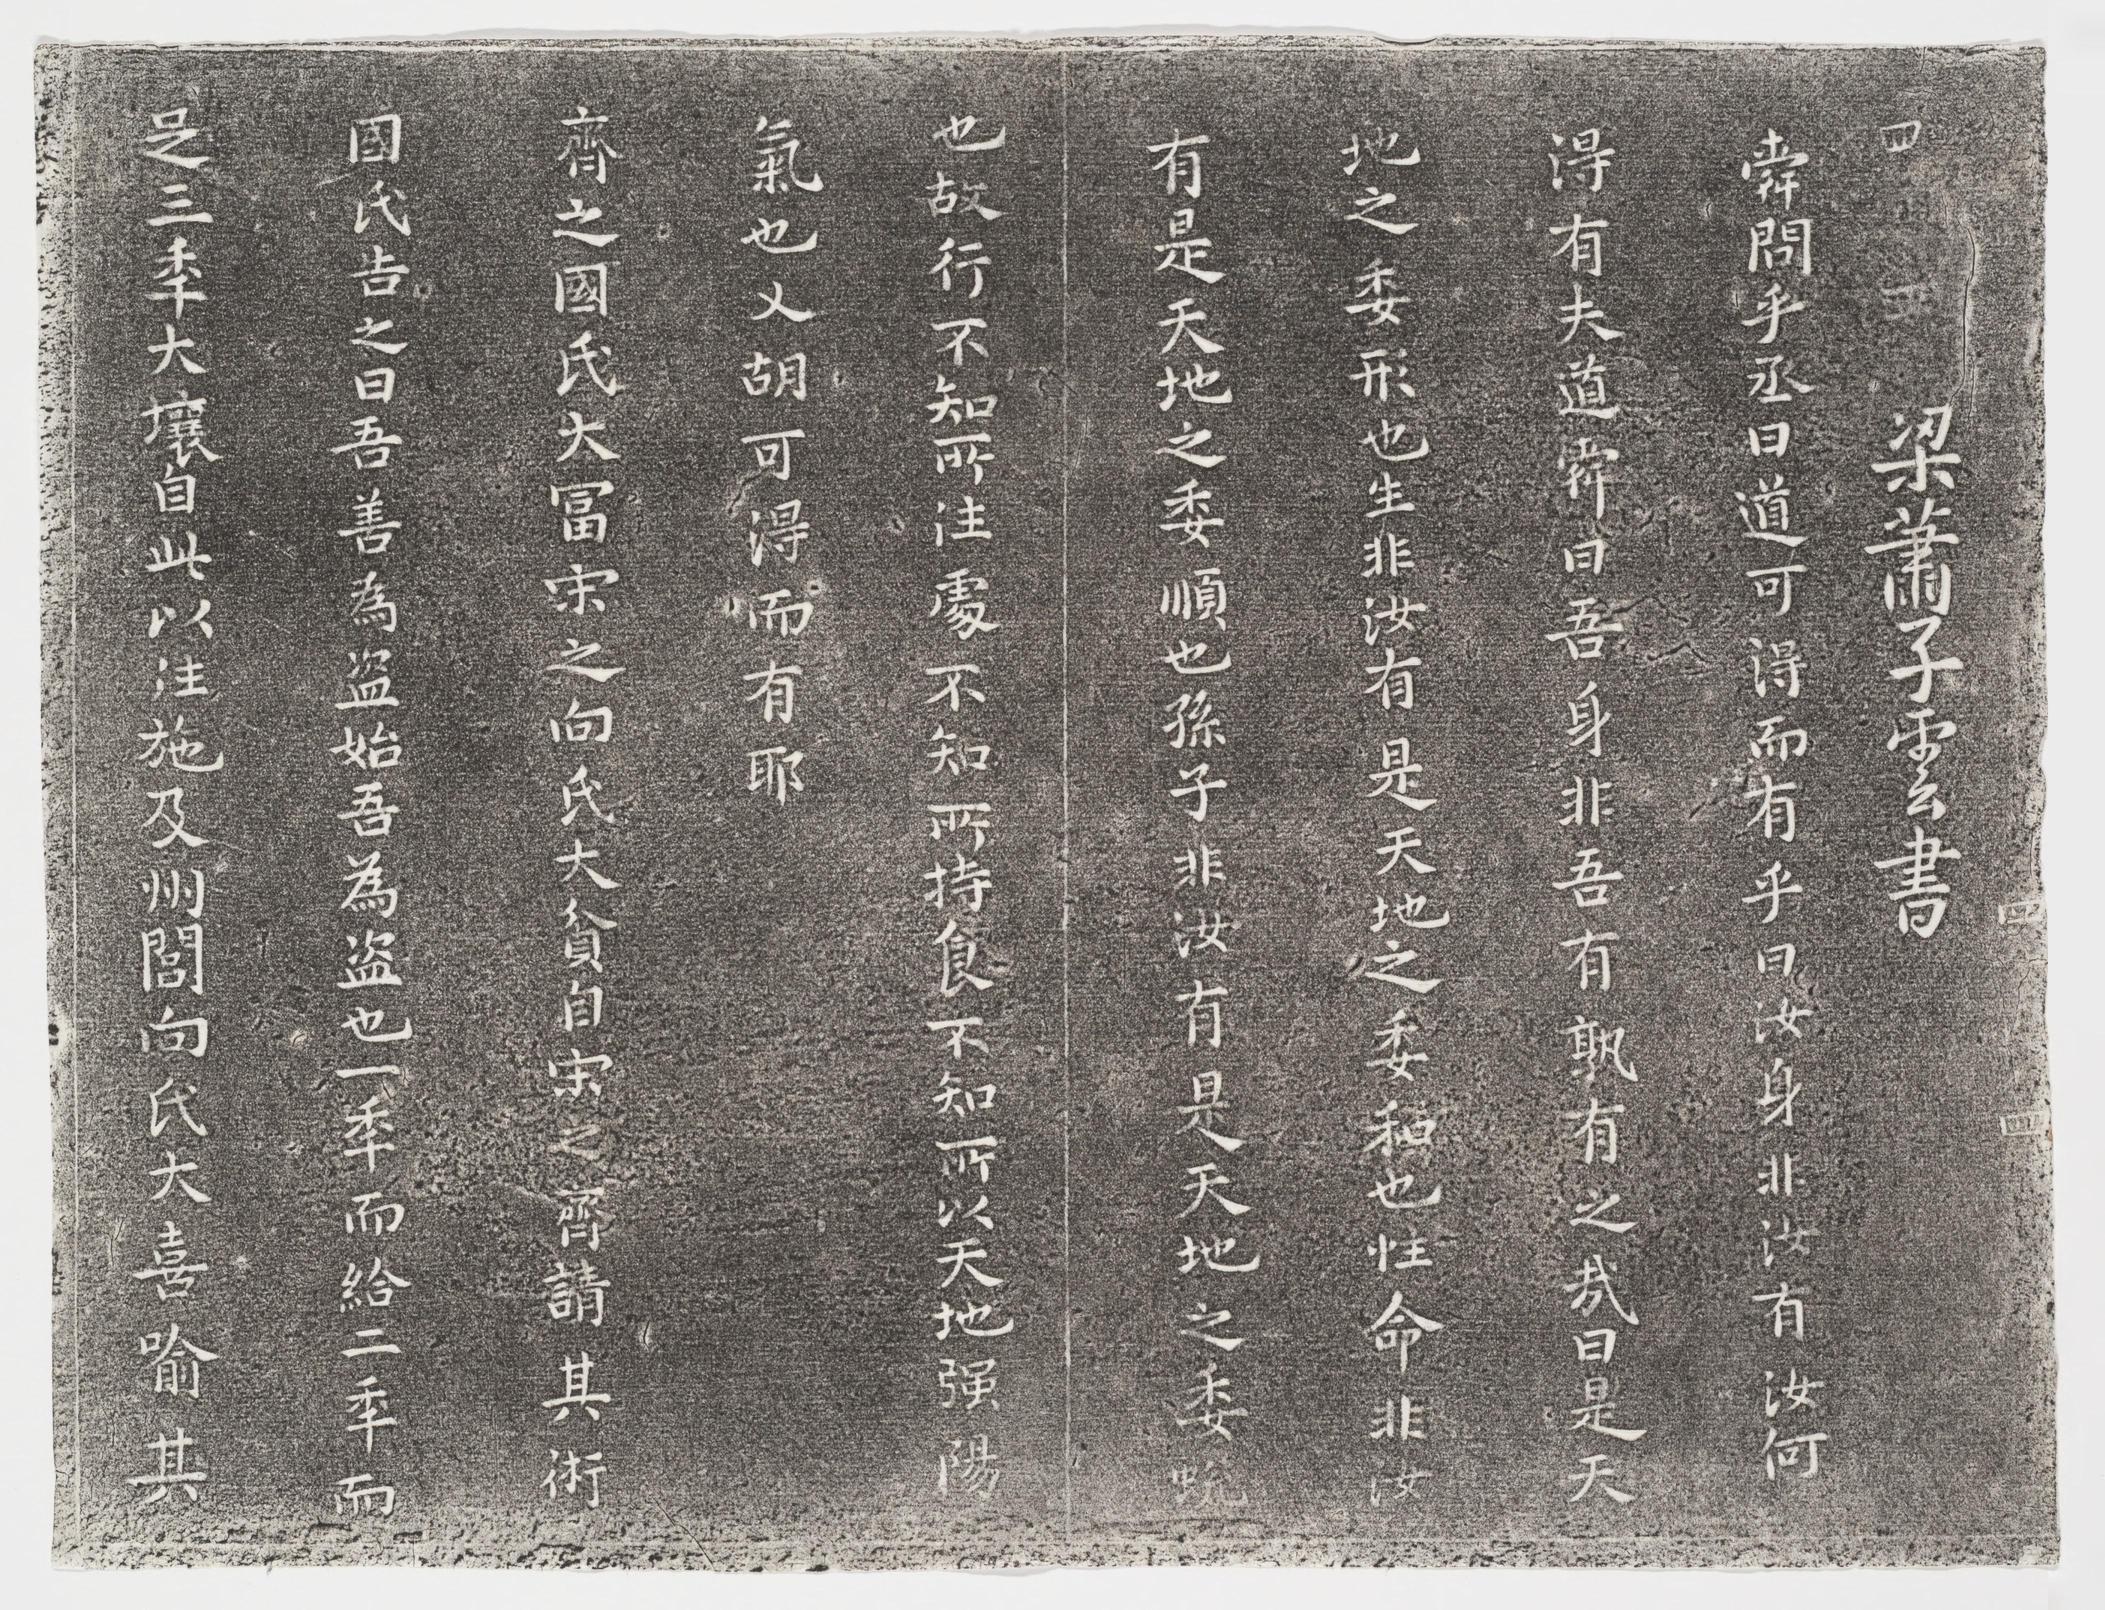 四
梁蕭子雲書
舜問乎丞曰道可得而有乎曰汝身非汝有汝何
得有夫道舜曰吾身非吾有孰有之哉曰是天
地之委形也生非汝有是天地之委和也性命非汝
有是天地之委順也孫子非汝有是天地之委蛻
也故行不知所往處不知所持食不知所以天地强陽
氣也又胡可得而有耶
齊之國氏大冨宋之向氏大貧自宋之齊請其術
國氏告之曰吾善為盜始吾為盜也一秊而給二秊而
足三秊大壤自此以往施及州閭向氏大喜喻其
四
四